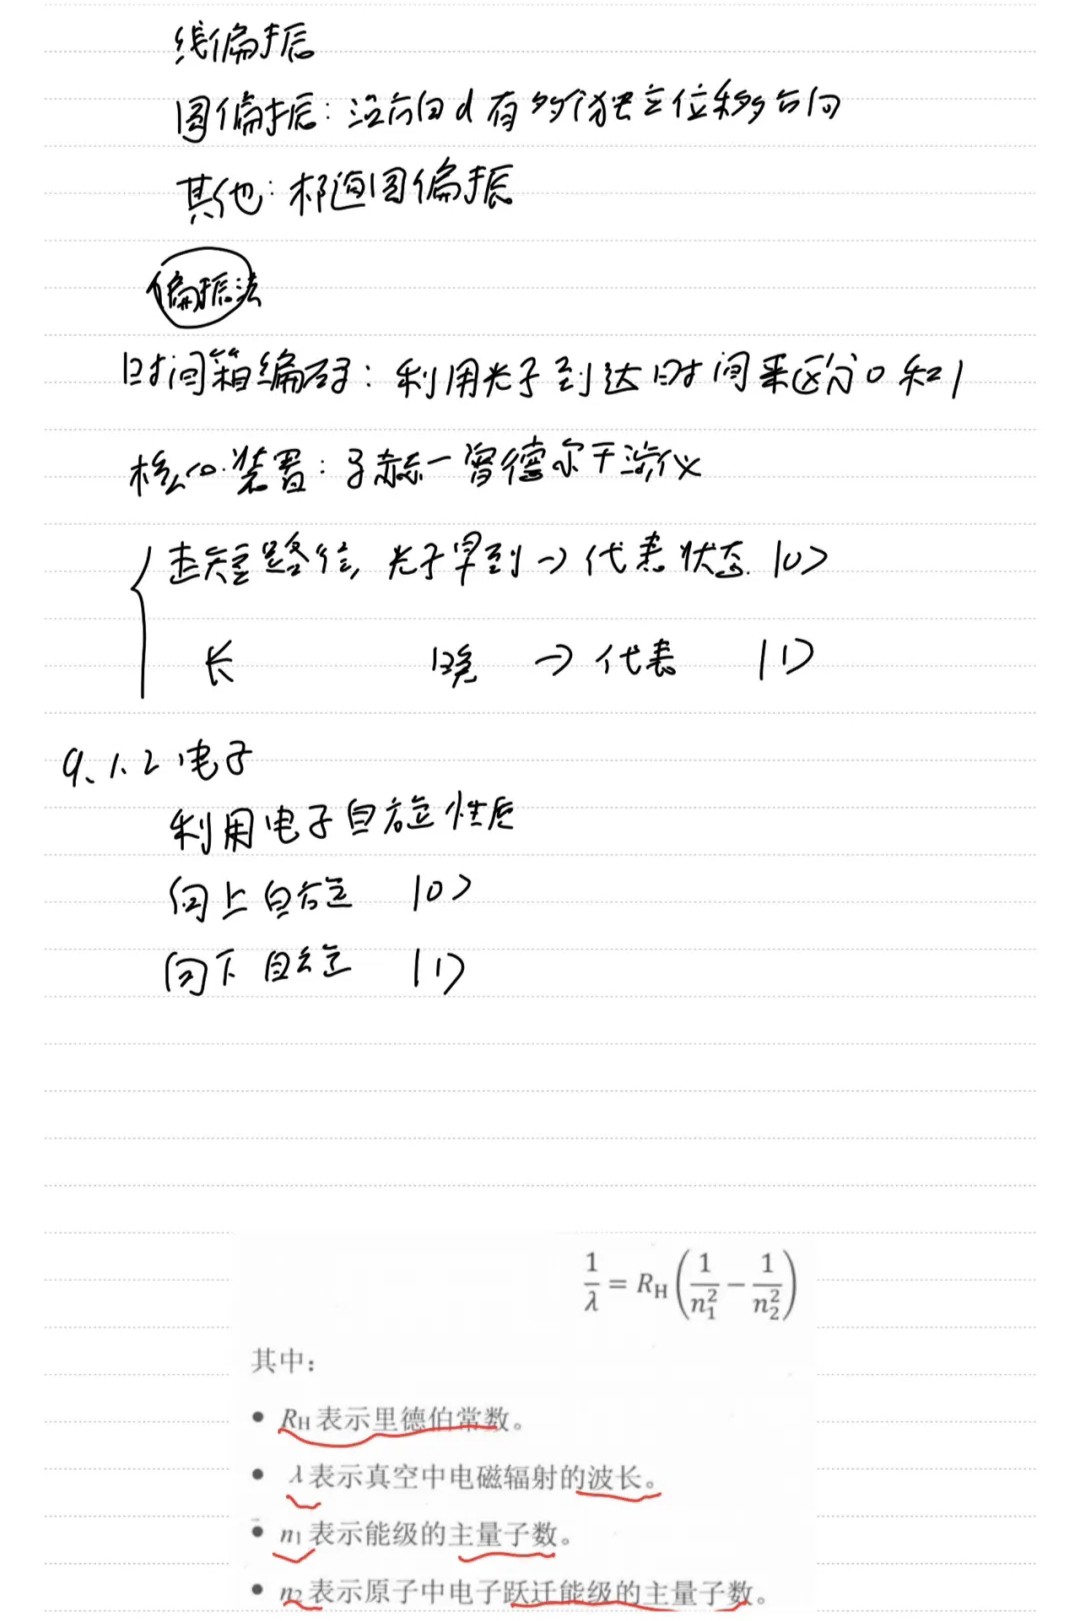 线偏振
圆偏振：沿方向d有多个独立位移方向
其他：椭圆偏振
偏振法
时间箱编码：利用光子到达时间来区分0和1
核心装置：马赫一曾德尔干涉仪
走短路径，光子早到→代表状态 |0>
长 晚 →代表 |1>
9.1.2 电子
利用电子自旋性质
向上自旋 |0>
向下自旋 |1>
1/λ = R_H (1/n₁² − 1/n₂²)
其中：
• R_H 表示里德伯常数。
• λ 表示真空中电磁辐射的波长。
• n₁ 表示能级的主量子数。
• n₂ 表示原子中电子跃迁能级的主量子数。